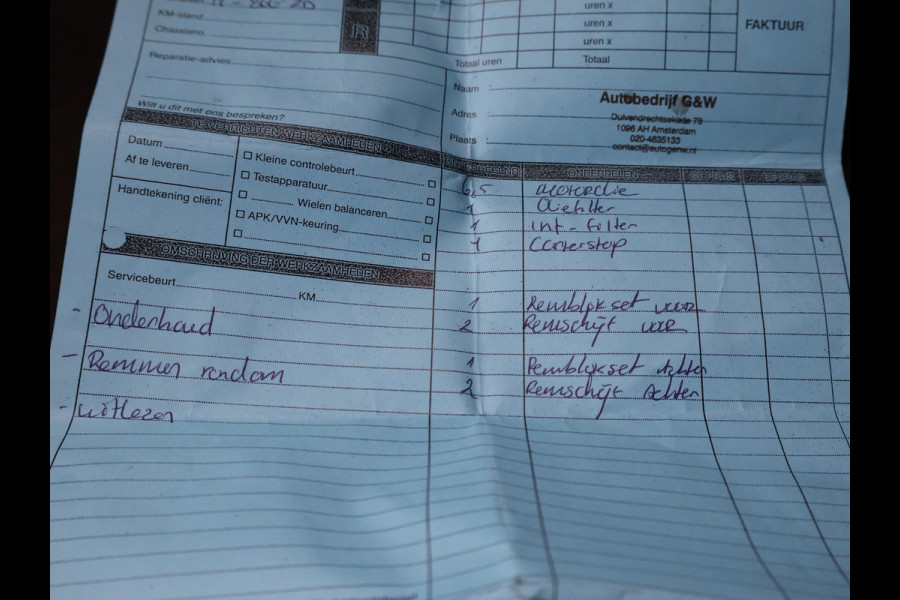 uren x
KM-stand
uren x
FAKTUUR
Chassisno.
uren x
Reparatie-advies
Totaal uren
Totaal
Naam :
Autobedrijf G&W
Adres :
Duivendrechtsekade 78
1096 AH Amsterdam
Plaats :
020-4635133
contact@autogenw.nl
Wilt u dit met ons bespreken?
TE VERRICHTEN WERKZAAMHEDEN
ONDERDELEN
Datum
Af te leveren
Handtekening cliënt:
Kleine controlebeurt
Testapparatuur
Wielen balanceren
APK/VVN-keuring
6,5 motorolie
1 Oliefilter
1 Int-filter
1 Carterstop
OMSCHRIJVING DER WERKZAAMHEDEN
Servicebeurt KM
1 Remblokset voor
- Onderhoud
2 Remschijf voor
- Remmen rondom
1 Remblokset Achter
2 Remschijf Achter
- uitlezen